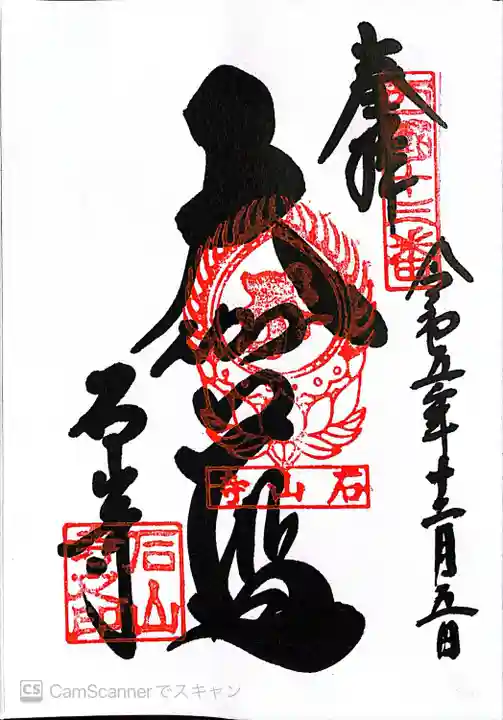 奉拝
西国十三番
令和五年十二月五日
大伽藍
石山寺
石山寺
石山
CamScannerでスキャン